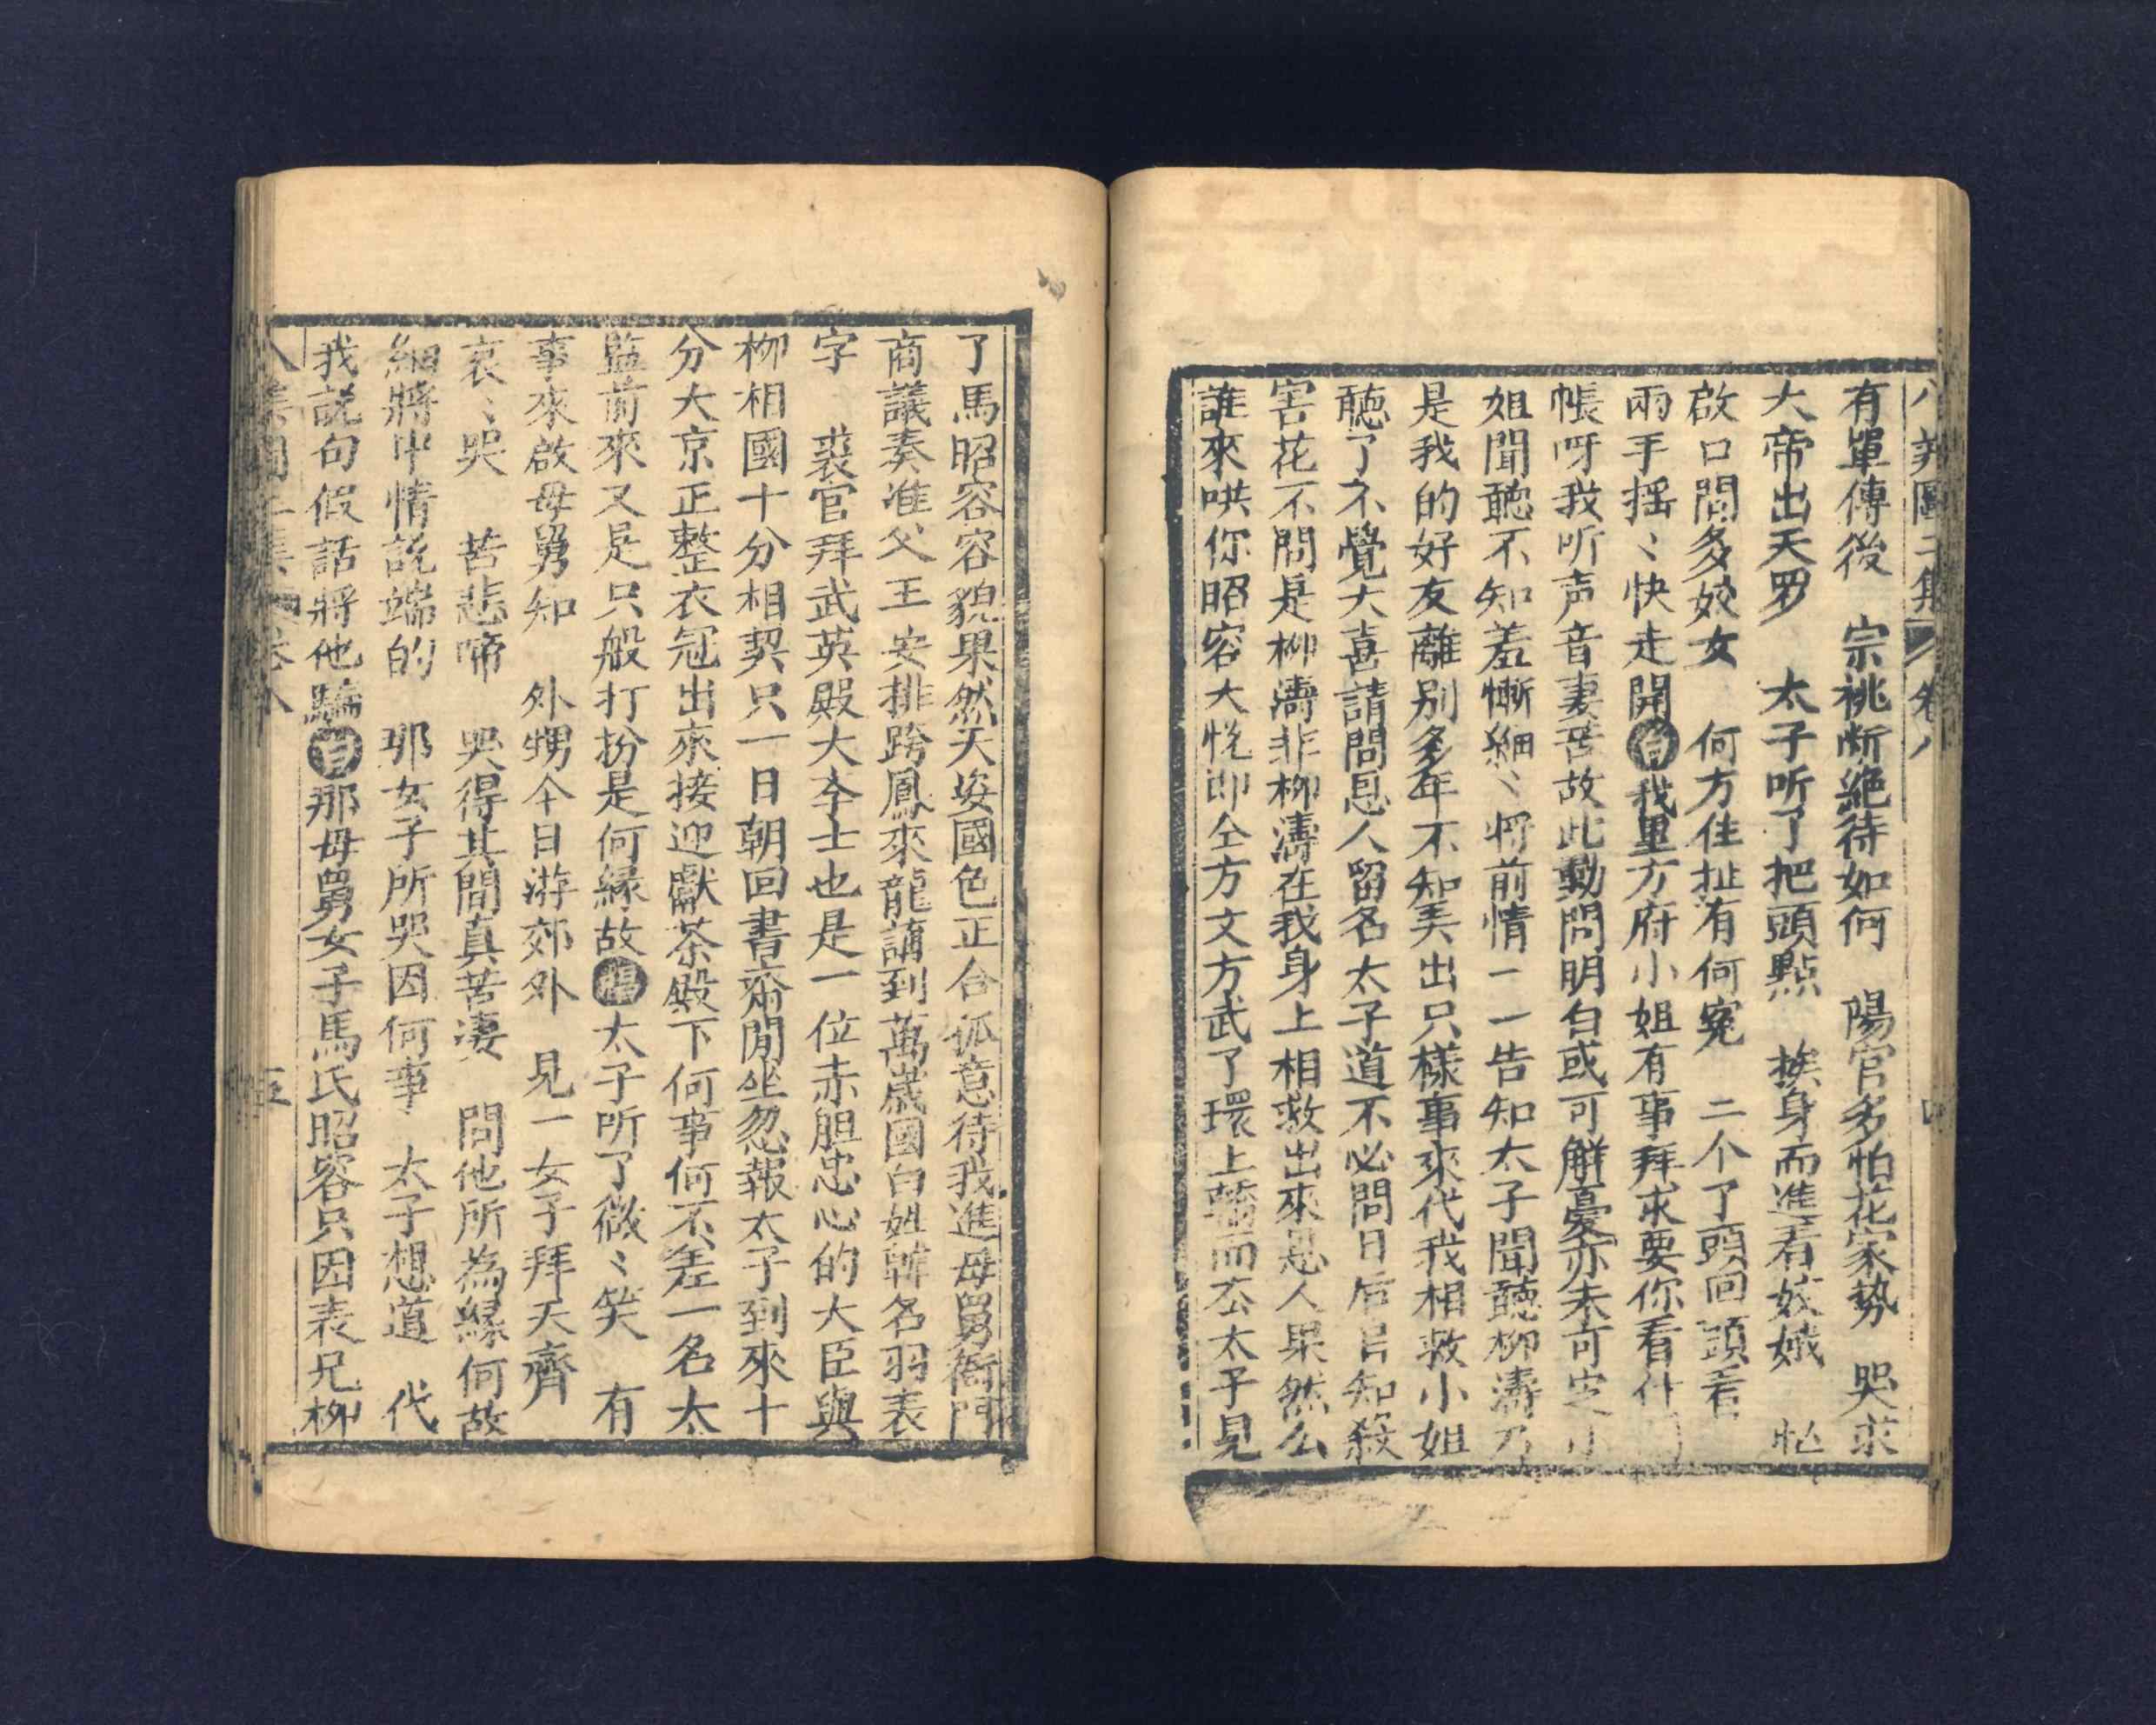 八美圖二集 卷八 四
有單傳後 宗祧断絶待如何 陽官多怕花家勢 哭求
大帝出天罗 太子听了把頭點 挨身而進看姣娥 忙
啟口問多姣女 何方住扯有何冤 二个了頭回頭看
兩手摇〻快走開白我里方府小姐有事拜求要你看什
帳呀我听声音妻苦故此動問明白或可觧憂亦未可定小
姐聞聽不知羞慚細〻将前情一一告知太子聞聽柳濤乃
是我的好友離別多年不知美出只樣事來代我相救小姐
聽了不覺大喜請問恩人留名太子道不必問日后自知殺
害花不問是柳濤非柳濤在我身上相救出來恩人果然么
誰來哄你昭容大悅即仝方文方武了環上轎而厺太子見
了馬昭容容貌果然天姿國色正合孤意待我進母舅衙門
商議奏准父王安排跨鳳來龍講到萬歲國白姓韓名羽表
字 裴官拜武英殿大李士也是一位赤胆忠心的大臣與
柳相國十分相契只一日朝回書齋閒坐忽報太子到來十
分大京正整衣冠出來接迎獻茶殿下何事何不差一名太
監前來又是只般打扮是何緣故唱太子听了微〻笑 有
事來啟母舅知 外甥今日游郊外 見一女子拜天齊
哀〻哭 苦悲啼 哭得其間真苦凄 問他所為緣何故
細將中情説端的 耶女子所哭因何事 太子想道 代
我説句假話將他騙白那母舅女子馬氏昭容只因表兄柳
八美圖二集 卷八 五